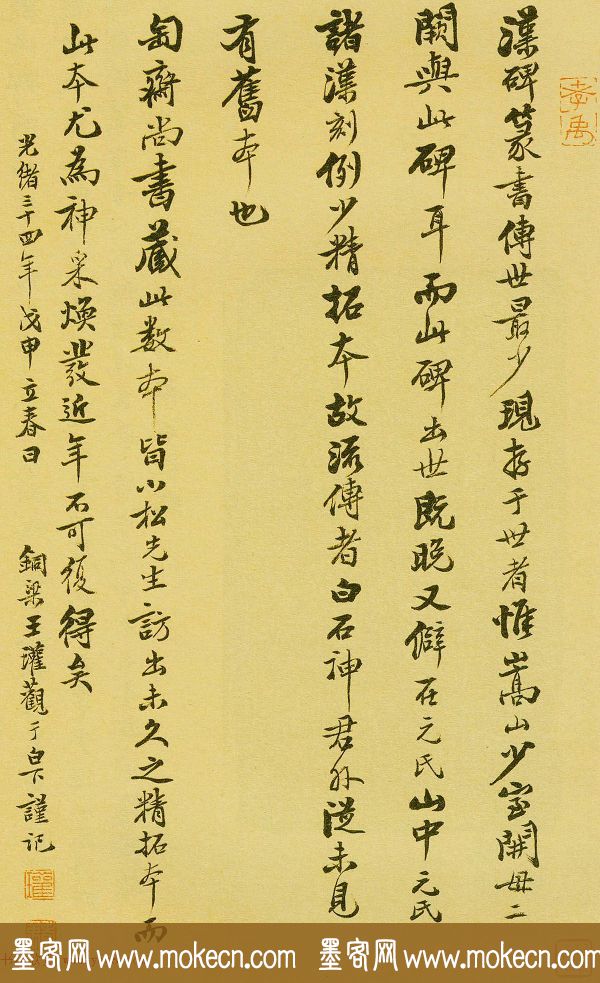 漢碑篆書傳世最少現存于世者惟嵩山少室開母二
闕與此碑耳而此碑出世既晚又僻在元氏山中元氏
諸漢刻例少精拓本故流傳者白石神君外從未見
有舊本也
匋齋尚書藏此數本皆小松先生訪出未久之精拓本而
此本尤為神采煥發近年不可復得矣
光緒三十四年戊申立春日 銅梁王瓘觀于白下謹記
孝禹
瓘
墨客网 www.mokecn.com 墨客网 www.mokecn.com